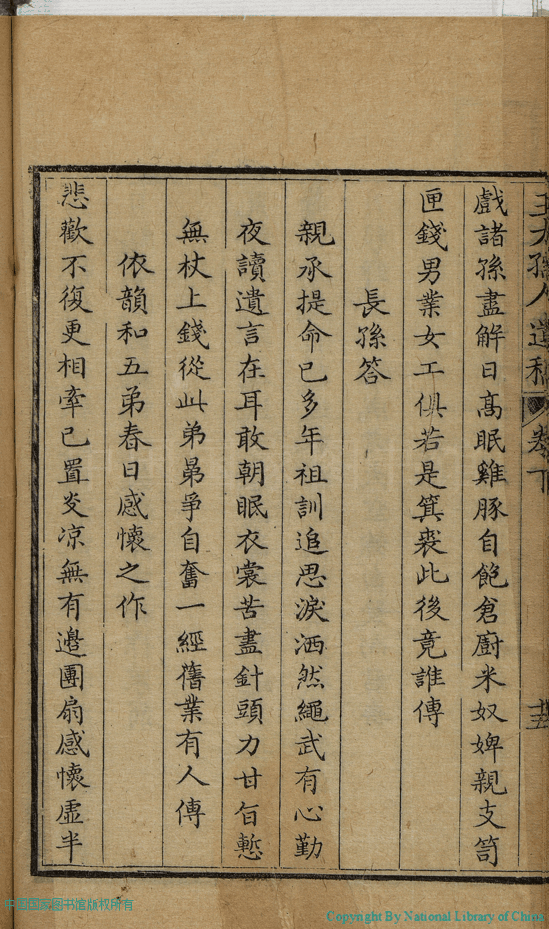 王太孺人遺稿 卷下
戲諸孫盡解日髙眠雞豚自飽倉廚米奴婢親支笥
匣錢男業女工俱若是箕裘此後竟誰傳
長孫答
親承提命已多年祖訓追思淚洒然繩武有心勤
夜讀遺言在耳敢朝眠衣裳苦盡針頭力甘旨慙
無杖上錢從此弟晜爭自奮一經舊業有人傳
依韻和五弟春日感懷之作
悲歡不復更相牽已置炎凉無有邊團扇感懷虛半
中国国家图书馆版权所有
Copyright By National Library of China